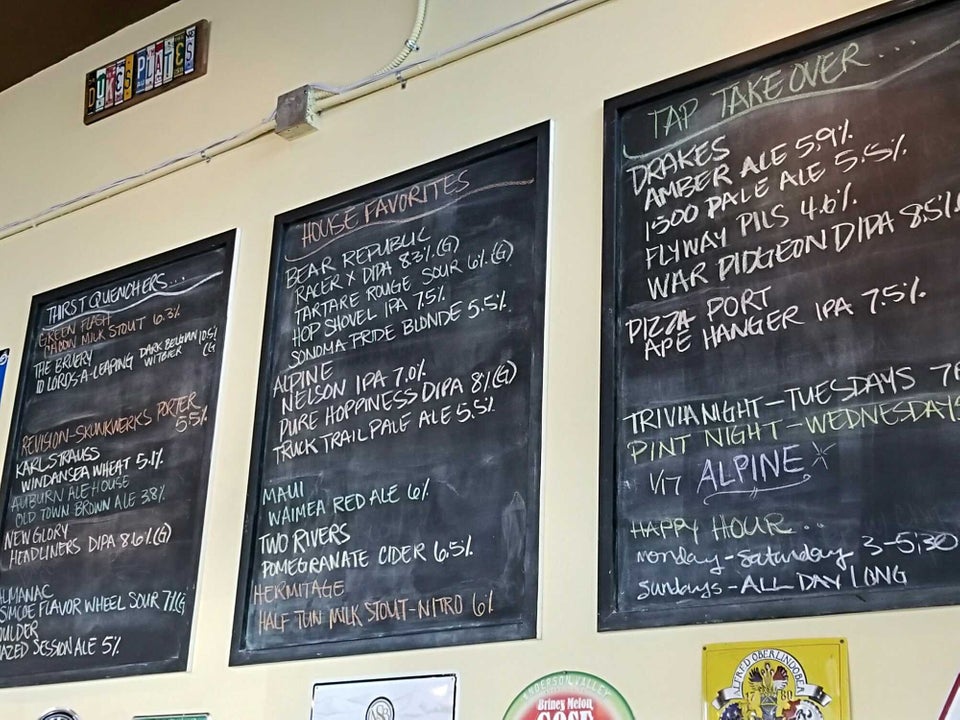 DUKES PLATES
THIRST QUENCHERS...
GREEN FLASH
CABON MILK STOUT 6.3%
THE BRUERY
10 LORDS-A-LEAPING DARK BELGIAN WITBIER 10.5% (G
REVISION-SKUNKWERKS PORTER
5.5%
KARL STRAUSS
WINDANSEA WHEAT 5.1%
AUBURN ALE HOUSE
OLD TOWN BROWN ALE 3.8%
NEW GLORY
HEADLINERS DIPA 8.6% (G)
ALMANAC
SIMCOE FLAVOR WHEEL SOUR 7% (G
OULDER
AZED SESSION ALE 5%
HOUSE FAVORITES
BEAR REPUBLIC
RACER X DIPA 8.3% (G)
TARTARE ROUGE SOUR 6% (G)
HOP SHOVEL IPA 7.5%
SONOMA PRIDE BLONDE 5.5%
ALPINE
NELSON IPA 7.0%
PURE HOPPINESS DIPA 8% (G)
TRUCK TRAIL PALE ALE 5.5%
MAUI
WAIMEA RED ALE 6%
TWO RIVERS
POMEGRANATE CIDER 6.5%
HERMITAGE
HALF TUN MILK STOUT-NITRO 6%
TAP TAKE OVER....
DRAKES
AMBER ALE 5.9%
1500 PALE ALE 5.5%
FLYWAY PILS 4.6%
WAR PIDGEON DIPA 8.5%
PIZZA PORT
APE HANGER IPA 7.5%
TRIVIA NIGHT-TUESDAYS 7
PINT NIGHT-WEDNESDAYS
1/17 ALPINE
HAPPY HOUR...
monday-Saturday 3-5:30
sundays-ALL DAY LONG
ANDERSON VALLEY
Briney Melon
GOSE
ALFRED OBERLINDOBER
1780